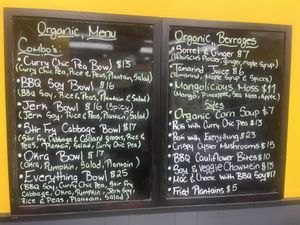 Organic Menu
Combo's:
• Curry Chic Pea Bowl $15
(Curry Chic Pea, Rice & Peas, Plantain, Salad)
• BBQ Soy Bowl $16
(BBQ Soy, Rice & Peas, Plantain, Salad)
• Jerk Bowl $16 (Spicy)
(Jerk Soy, Rice & Peas, Plantain, Salad)
• Stir Fry Cabbage Bowl $17
(Stir Fry Cabbage & Collard Greens, Rice & Peas, Plantain, Salad, Curry Chic Pea)
• Okra Bowl $17
(Okra, Pumpkin, Salad, Plantain)
• Everything Bowl $25
(BBQ Soy, Curry Chic Pea, Stir Fry
Cabbage, Okra, Pumpkin, Jerk Soy
Rice & Peas, Plantains, Salad)
Organic Bevrages
• Sorrel & Ginger $7
(Hibiscus Flower, Ginger, Maple Syrup)
• Tamarind Juice $6
(Tamarind, Maple Syrup & Spices)
• Mangolicious Moss $11
(Mango, Pineapple, Sea Moss, Apple)
Sides
• Organic Corn Soup $7
• Roti with Curry Chic Pea $15
• Roti with Everything $23
• Crispy Oyster Mushrooms $15
• BBQ Cauliflower Bites $10
• Soy & veggie Chowmein $15
• Mac & Cheese With BBQ Soy $17
• Fried Plantains $5